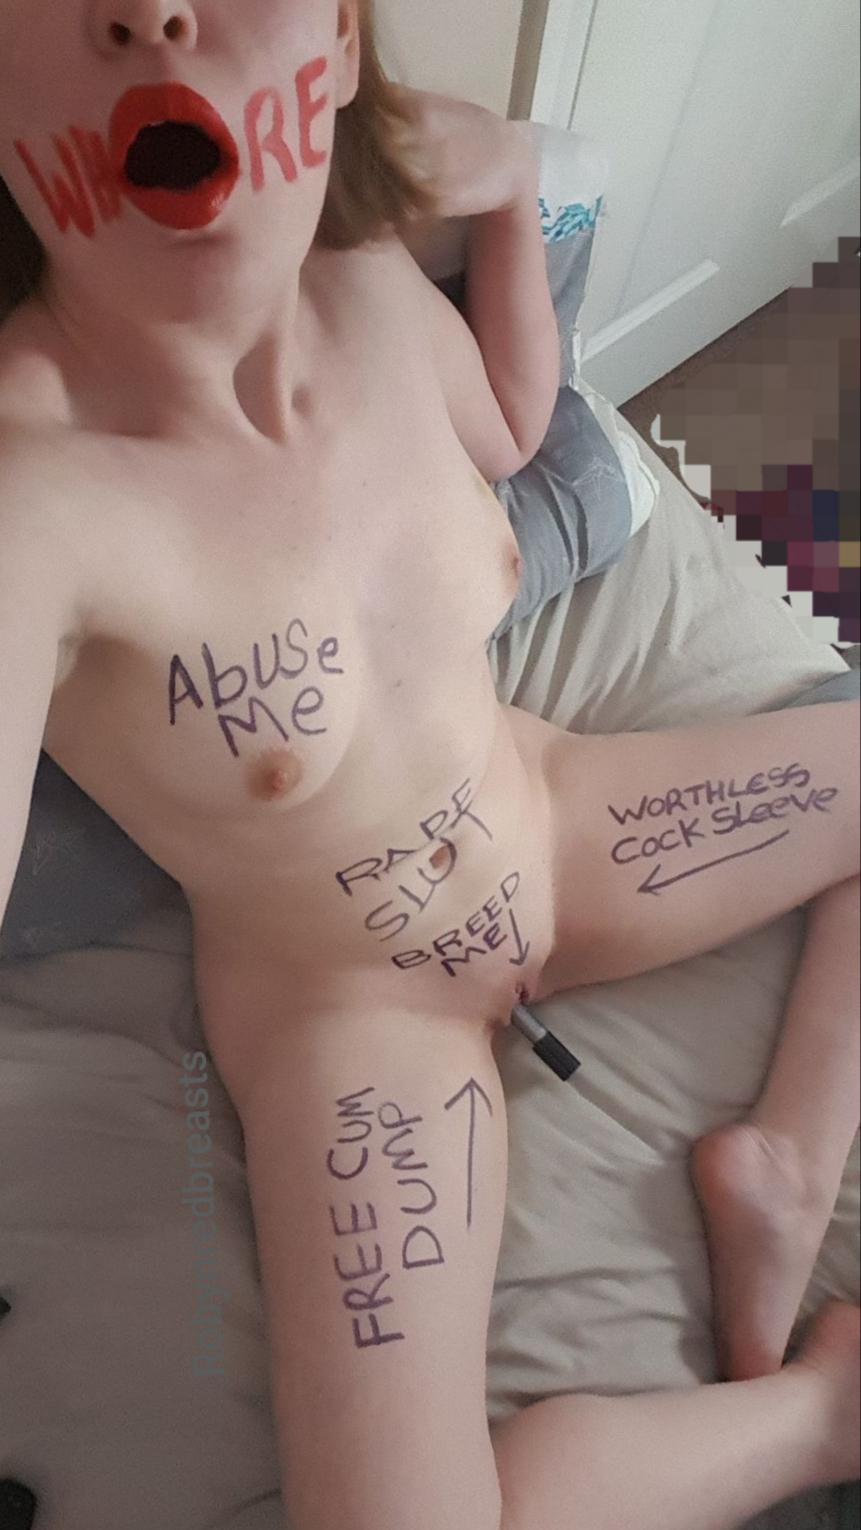 WHORE
Abuse
Me
RAPE
SLUT
BREED
ME
WORTHLESS
Cock Sleeve
FREE CUM
DUMP
Robyninredbreasts